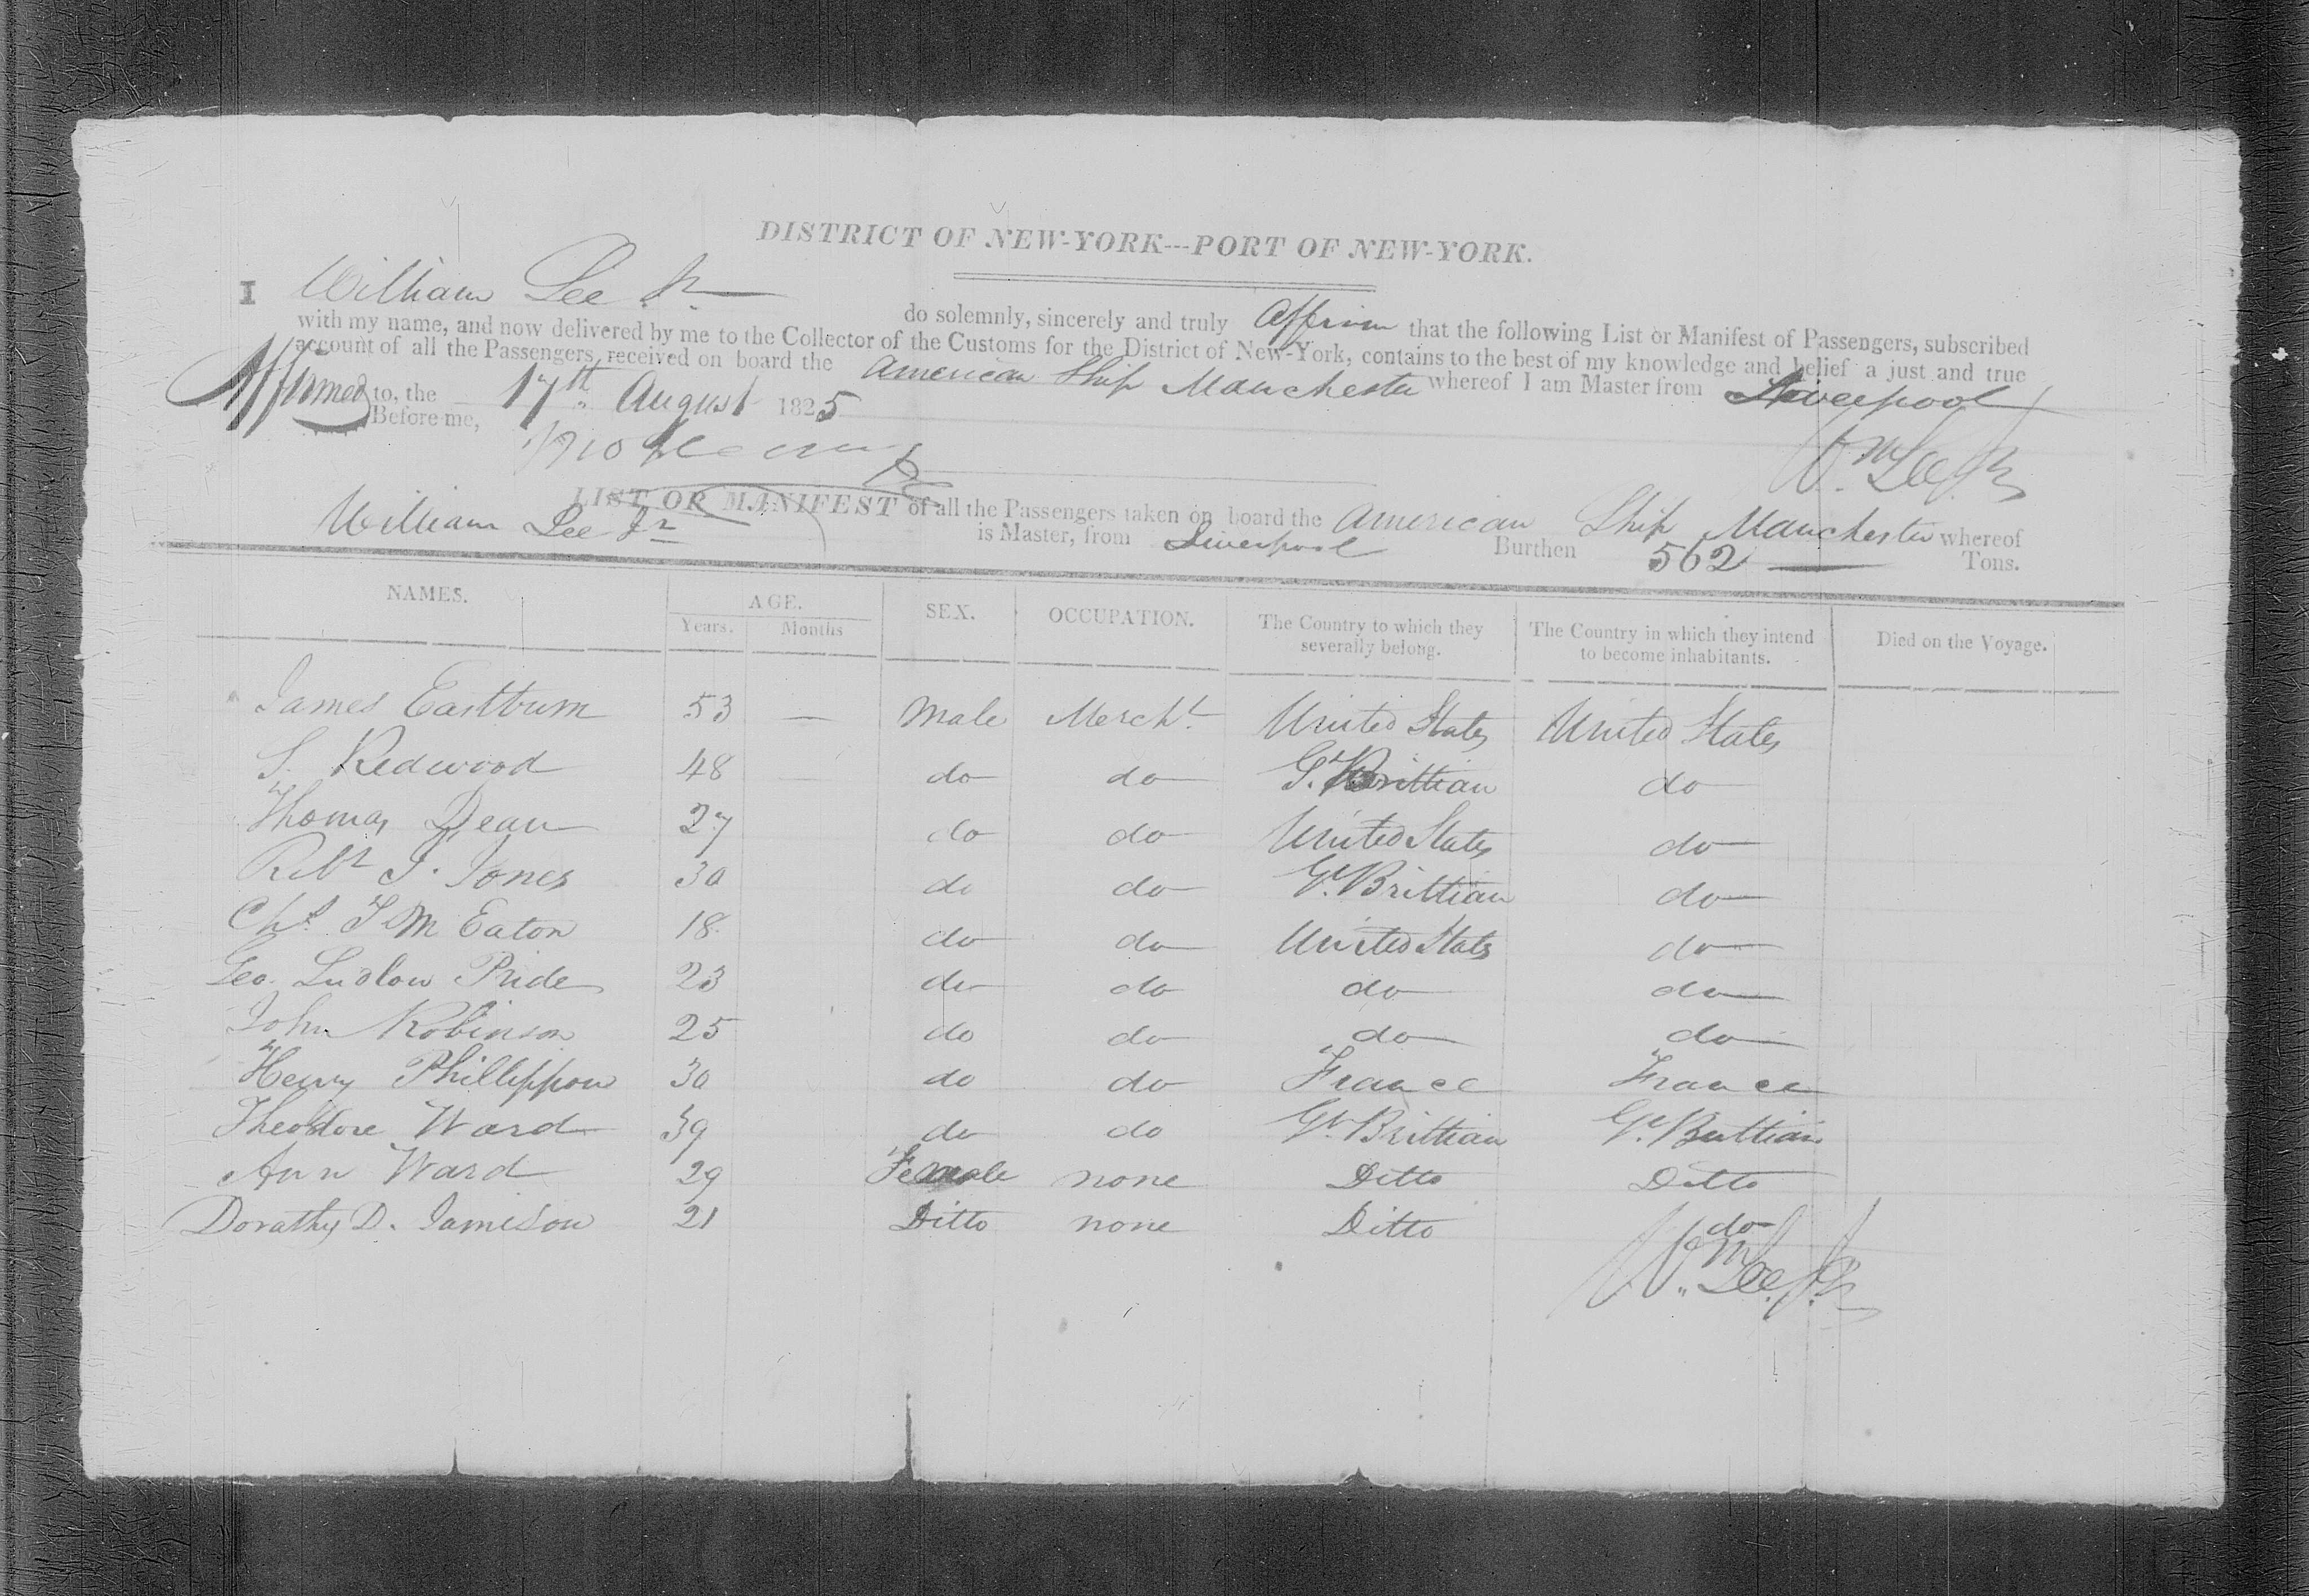 DISTRICT OF NEW-YORK---PORT OF NEW-YORK.
I William Lee Jr. do solemnly, sincerely and truly Affirm that the following List or Manifest of Passengers, subscribed
with my name, and now delivered by me to the Collector of the Customs for the District of New-York, contains to the best of my knowledge and belief a just and true
account of all the Passengers received on board the American Ship Manchester whereof I am Master from Liverpool
Affirmed to, the 17th August 1825
Before me,
Wm Lee Jr
LIST OR MANIFEST of all the Passengers taken on board the American Ship Manchester whereof
William Lee Jr is Master, from Liverpool Burthen 562 Tons.
NAMES. AGE. SEX. OCCUPATION. The Country to which they severally belong. The Country in which they intend to become inhabitants. Died on the Voyage.
Years. Months
James Eastburn 53 — Male Mercht United States United States
S. Redwood 48 — do do Gt. Brittian do
Thomas Dean 27 do do United States do
Robt S. Jones 30 do do Gt. Brittian do
Chs. F M Eaton 18 do do United States do
Geo. Ludlow Pride 23 do do do do
John Robinson 25 do do do do
Henry Phillippon 30 do do France France
Theodore Ward 39 do do Gt. Brittian Gt. Brittian
Ann Ward 29 Female none Ditto Ditto
Dorathy D. Jamison 21 Ditto none Ditto do
Wm. Lee Jr.